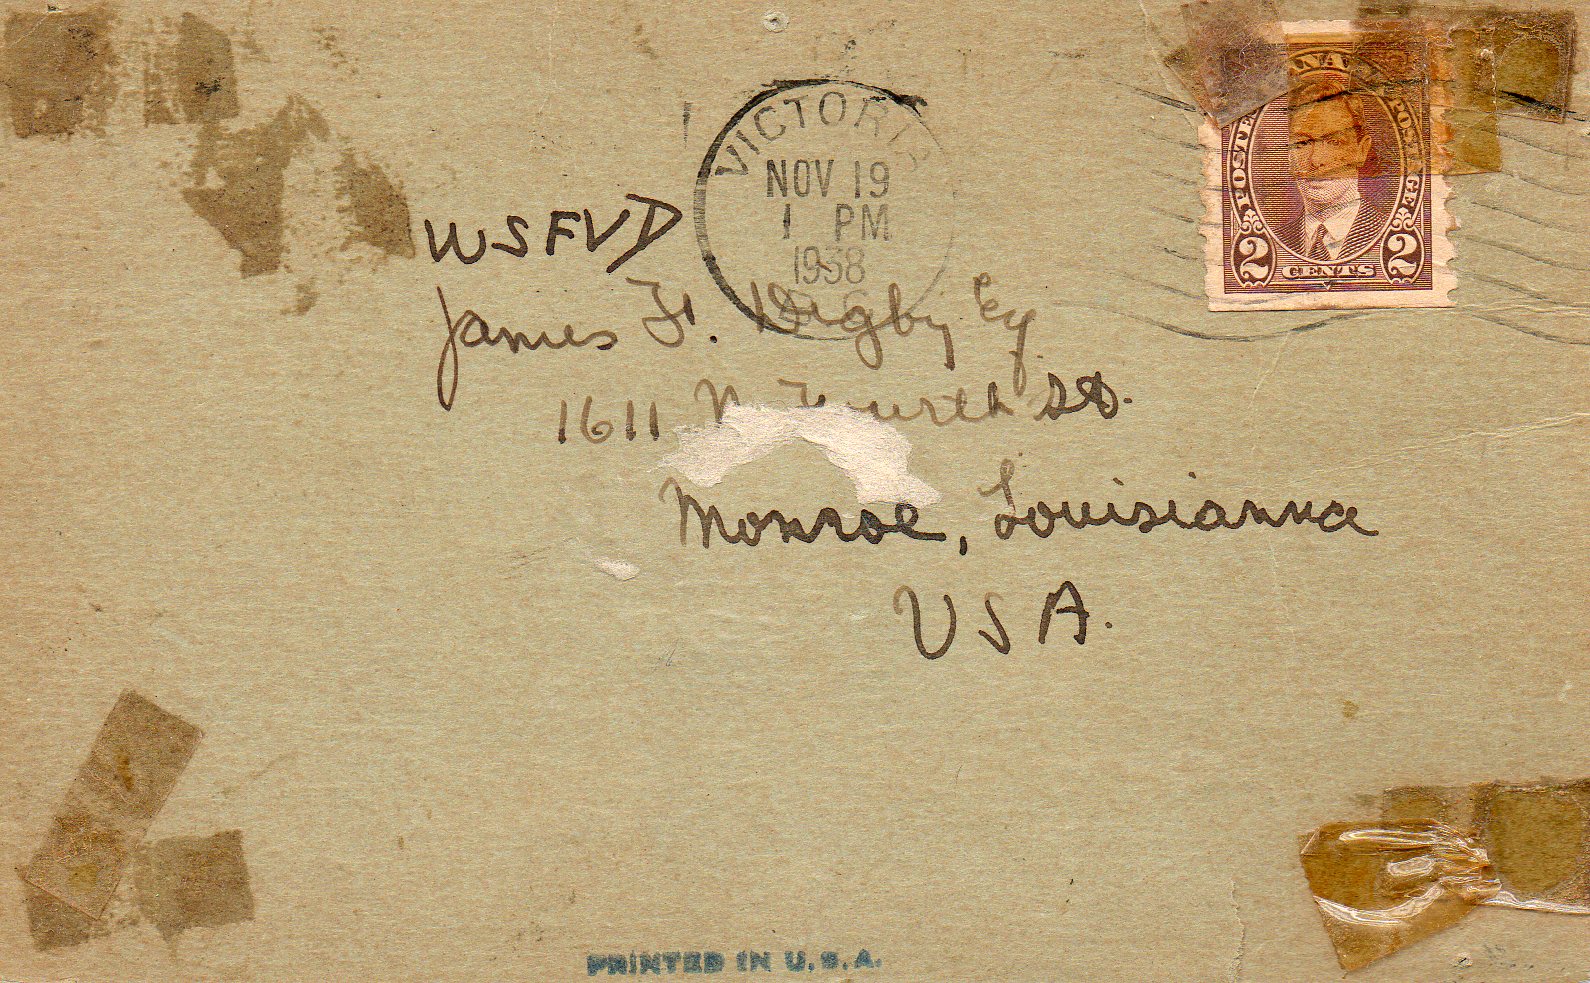 VICTORIA
NOV 19
1 PM
1938
POSTES CANADA POSTAGE
2 CENTS 2
W5FVD
James F. Digby Esq
1611 N. Fourth St.
Monroe, Louisianna
USA.
PRINTED IN U.S.A.